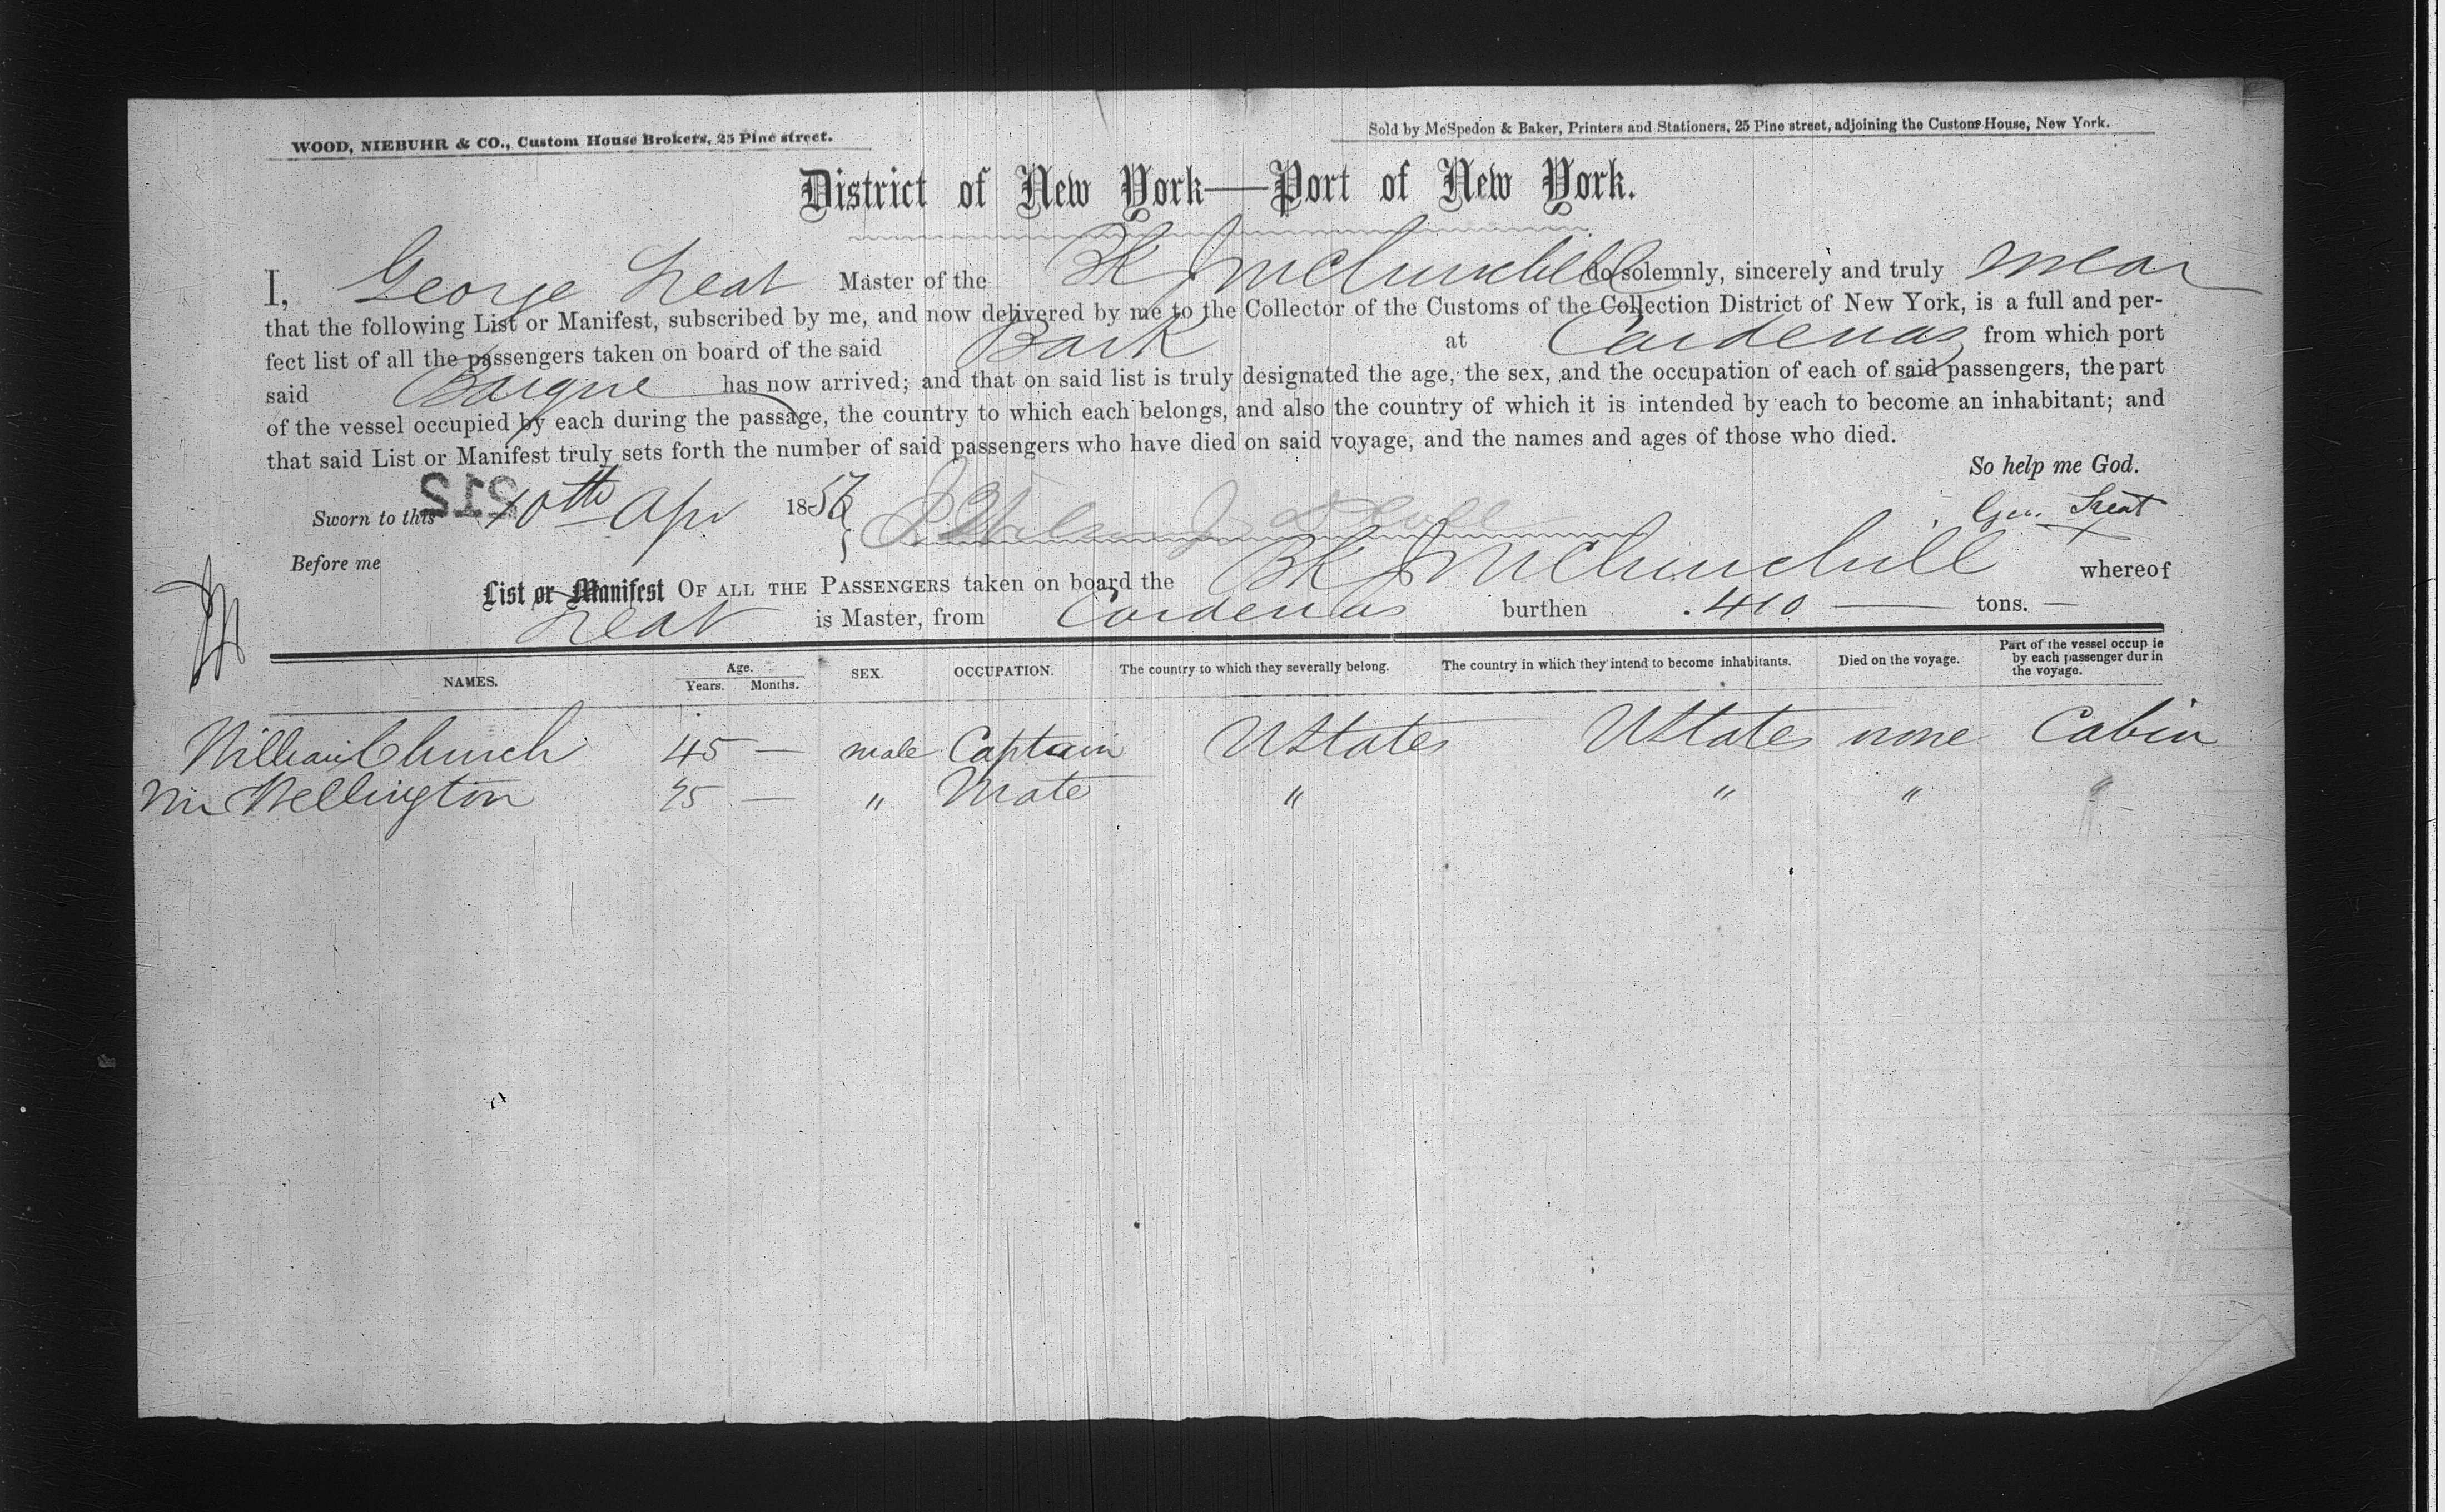 WOOD, NIEBUHR & CO., Custom House Brokers, 25 Pine street.
Sold by McSpedon & Baker, Printers and Stationers, 25 Pine street, adjoining the Custom House, New York.
District of New York—Port of New York.
I, George Treat Master of the Bk J Mc Churchill do solemnly, sincerely and truly swear
that the following List or Manifest, subscribed by me, and now delivered by me to the Collector of the Customs of the Collection District of New York, is a full and per-
fect list of all the passengers taken on board of the said Bark at Cardenas from which port
said Barque has now arrived; and that on said list is truly designated the age, the sex, and the occupation of each of said passengers, the part
of the vessel occupied by each during the passage, the country to which each belongs, and also the country of which it is intended by each to become an inhabitant; and
that said List or Manifest truly sets forth the number of said passengers who have died on said voyage, and the names and ages of those who died.
So help me God.
Sworn to this 10th Apr 185 Geo. Treat
212
Before me
List or Manifest OF ALL THE PASSENGERS taken on board the Bk J Mc Churchill whereof
Treat is Master, from Cardenas burthen 410 — tons. —
NAMES. Age. Years. Months. SEX. OCCUPATION. The country to which they severally belong. The country in which they intend to become inhabitants. Died on the voyage. Part of the vessel occup ie by each passenger dur in the voyage.
William Church 45 — male Captain UStates UStates none Cabin
Wellington — " Mate " " " "